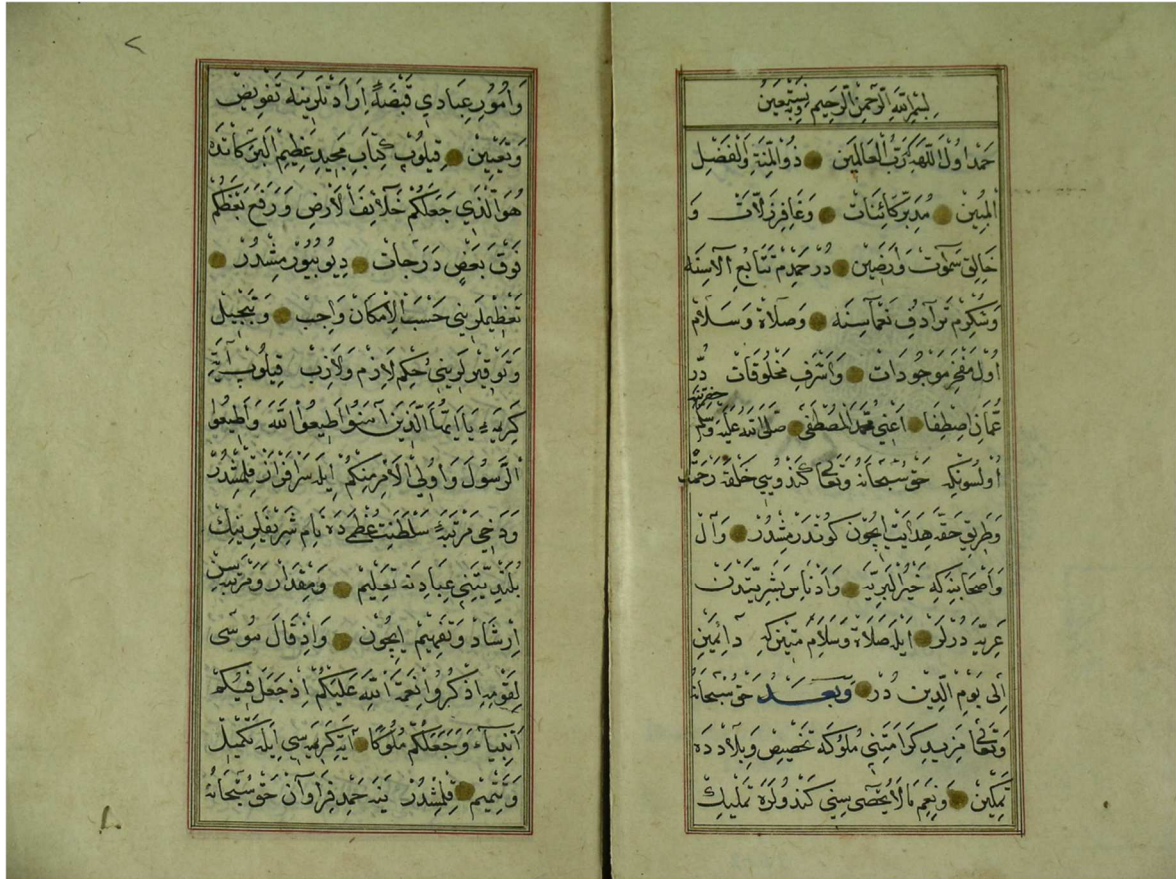 بسم الله الرحمن الرحيم وبه نستعين
حمد اول اللهه كه رب العالمين ذو المنة والفضل
المبين مدبر كائنات وغافر زلات و
خالق سموات وارضين در حمدم تتابع آلاسنه
وشكرم ترادف نعماسنه وصلاة وسلام
اول مفخر موجودات واشرف مخلوقات در
عمان اصطفا اعني محمد المصطفى صلى الله عليه وسلم
حضرتنه
اولسونكه حق سبحانه وتعالى كندويى خلقه رحمت
وطريق حقه هدايت ايچون كوندرمشدر وآل
واصحابنه كه خير البريه وادناس بشريتدن
عريه درلر ايله صلاة وسلام متين كه دائمين
الى يوم الدين در وبعد حق سبحانه
وتعالى مزيد كرامتنى ملوكه تخصيص وبلادده
تمكين ونعم مالا يحصى سينى كندولره تمليك
وامور عبادي قبضۀ ارادتلرينه تفويض
وتعيين قيلوب كتاب مجيد عظيم البرهانده
هو الذي جعلكم خلائف الارض ورفع بعضكم
فوق بعض درجات ديو بيورمشدر
تعظيملريني حسب الامكان واجب وتبجيل
وتوقيرلريني حكم لازم ولازب قيلوب آية
كريمه ء يا ايها الذين آمنوا اطيعوا الله واطيعوا
الرسول واولي الامر منكم ايله سرافراز قلمشدر
ودخي مرتبۀ سلطنت عظمى ده نام شريفلرينك
بلنديتيني عبادنه تعليم ومقدار ومرتبه سن
ارشاد وتفهيم ايچون واذ قال موسى
لقومه اذكروا نعمة الله عليكم اذ جعل فيكم
انبياء وجعلكم ملوكا آيه كريمه سي ايله تكميل
وتتميم قلمشدر ينه حمد فراوان حق سبحانه